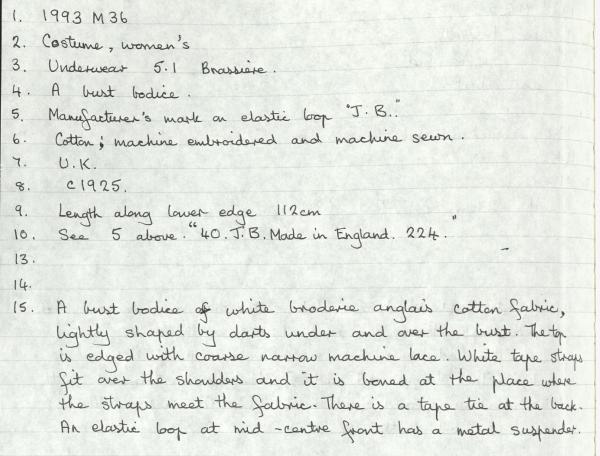 1. 1993 M36
2. Costume, women's
3. Underwear 5.1 Brassière.
4. A bust bodice.
5. Manufacturer's mark on elastic loop "J.B."
6. Cotton; machine embroidered and machine sewn.
7. U.K.
8. c1925.
9. Length along lower edge 112cm
10. See 5 above. "40. J.B. Made in England. 224."
13.
14.
15. A bust bodice of white broderie anglais cotton fabric,
lightly shaped by darts under and over the bust. The top
is edged with coarse narrow machine lace. White tape straps
fit over the shoulders and it is boned at the place where
the straps meet the fabric. There is a tape tie at the back.
An elastic loop at mid-centre front has a metal suspender.